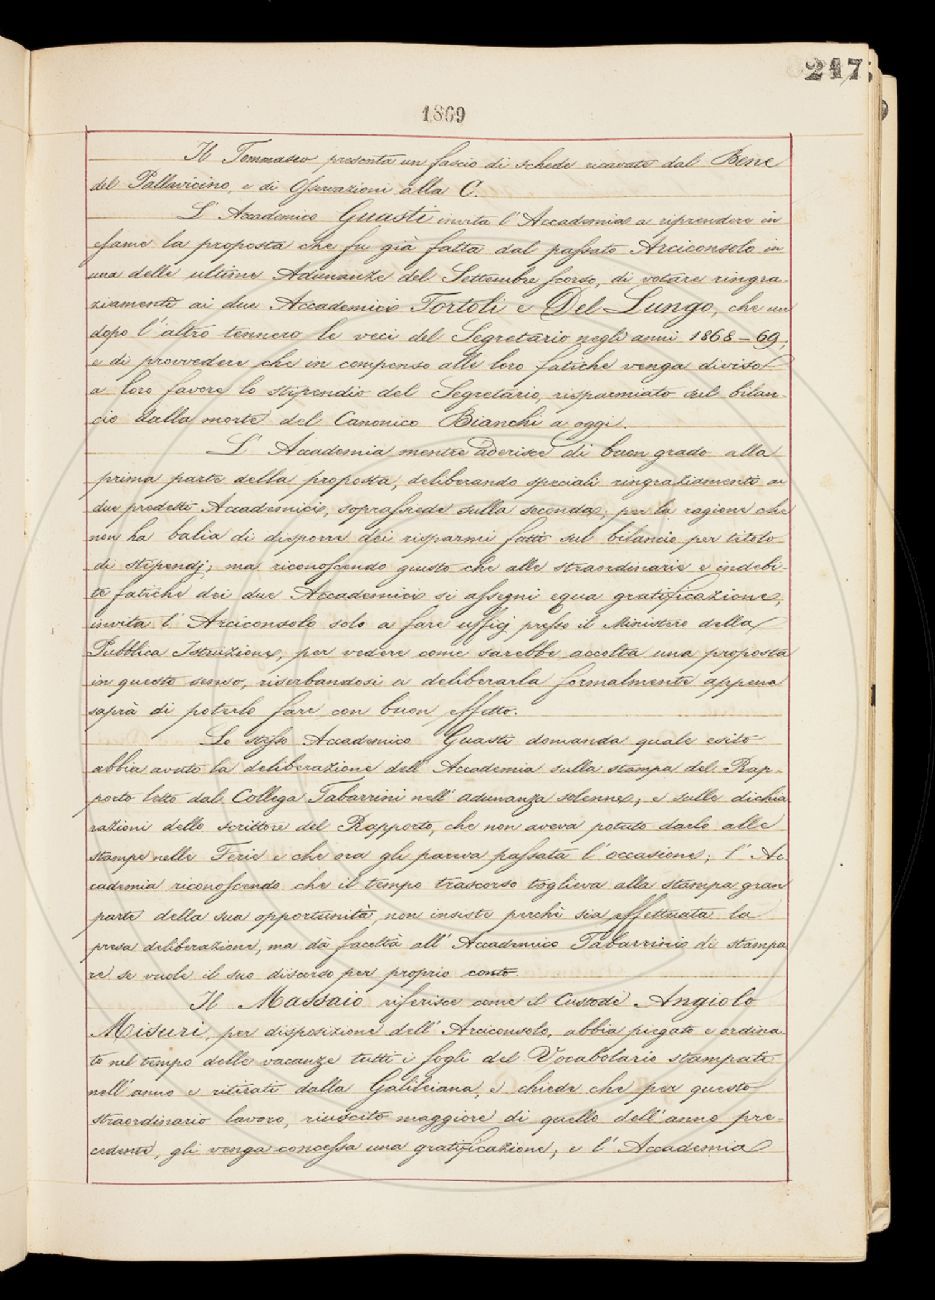 247
1869
Il Tommaseo presenta un fascio di schede ricavate dal Bene
del Pallavicino, e di Osservazioni alla C.
L' Accademico Guasti invita l'Accademia a riprendere in
esame la proposta che fu già fatta dal passato Arciconsolo in
una delle ultime Adunanze del Settembre scorso, di votare ringra-
ziamenti ai due Accademici Tortoli e Del Lungo, che un
dopo l'altro tennero le veci del Segretario negli anni 1868-69,
e di provvedere che in compenso alle loro fatiche venga diviso
a loro favore lo stipendio del Segretario, risparmiato sul bilan-
cio dalla morte del Canonico Bianchi a oggi.
L' Accademia mentre aderisce di buon grado alla
prima parte della proposta, deliberando speciali ringraziamenti ai
due predetti Accademici, soprassiede sulla seconda; per la ragione che
non ha balìa di disporre dei risparmi fatti sul bilancio per titolo
di stipendj; ma riconoscendo giusto che alle straordinarie e indebi-
te fatiche dei due Accademici si assegni equa gratificazione,
invita l' Arciconsolo solo a fare uffizj presso il Ministero della
Pubblica Istruzione, per vedere come sarebbe accolta una proposta
in questo senso, riserbandosi a deliberarla formalmente appena
saprà di poterlo fare con buon effetto.
Lo stesso Accademico Guasti domanda quale esito
abbia avuto la deliberazione dell' Accademia sulla stampa del Rap-
porto letto dal Collega Tabarrini nell' adunanza solenne; e sulle dichia
razioni dello scrittore del Rapporto, che non aveva potuto darlo alle
stampe nelle Ferie e che ora gli pareva passata l'occasione; l' Ac
cademia riconoscendo che il tempo trascorso toglieva alla stampa gran
parte della sua opportunità, non insiste perchè sia effettuata la
presa deliberazione, ma dà facoltà all' Accademico Tabarrini di stampa
re se vuole il suo discorso per proprio conto.
Il Massaio riferisce come il Custode Angiolo
Misuri, per disposizione dell' Arciconsolo, abbia piegato e ordina
to nel tempo delle vacanze tutti i fogli del Vocabolario stampati
nell' anno e ritirati dalla Galileiana, e chiede che per questo
straordinario lavoro, riuscito maggiore di quello dell' anno pre-
cedente, gli venga concessa una gratificazione; e l' Accademia